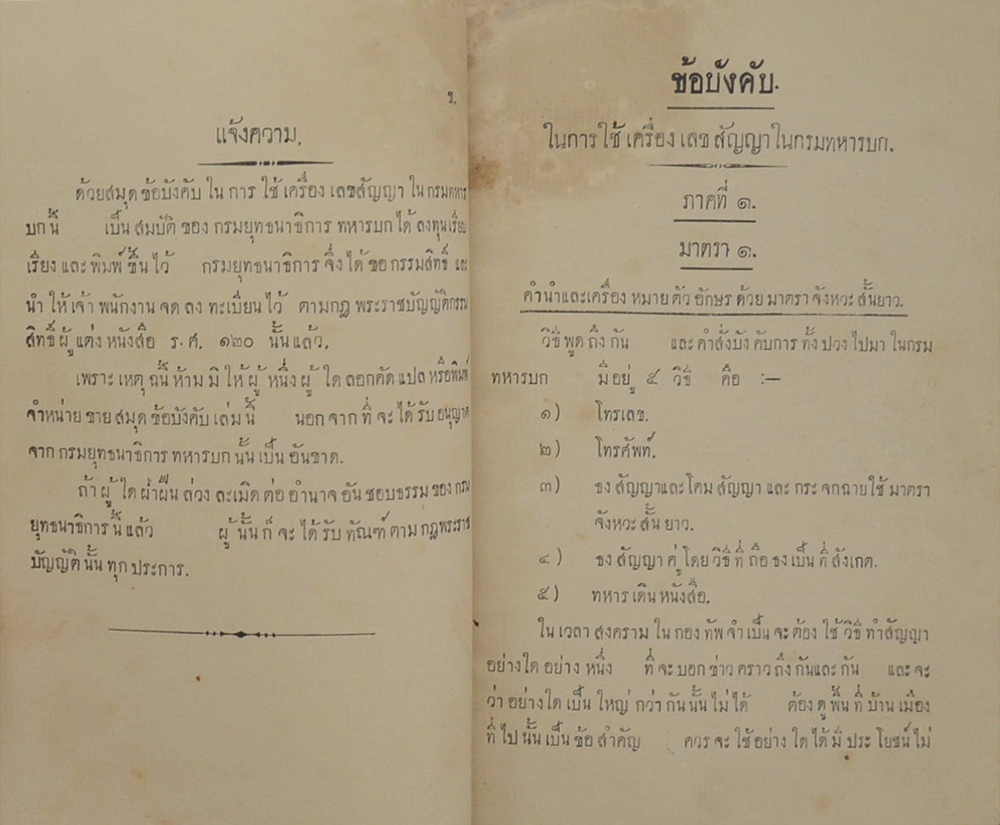 ข.
แจ้งความ.
ด้วยสมุด ข้อบังคับ ใน การ ใช้ เครื่อง เลขสัญญา ในกรมทหาร
บกนี้ เป็น สมบัติ ของ กรมยุทธนาธิการ ทหารบกได้ ลงทุนเรียบ
เรียง และ พิมพ์ ขึ้น ไว้ กรมยุทธนาธิการ จึ่ง ได้ ขอ กรรมสิทธิ์ และ
นำ ให้ เจ้า พนักงาน จด ลง ทะเบียน ไว้ ตามกฎ พระราชบัญญัติกรรม
สิทธิ์ ผู้ แต่ง หนังสือ ร. ศ. ๑๒๐ นั้นแล้ว.
เพราะ เหตุ ฉนี้ ห้าม มิ ให้ ผู้ หนึ่ง ผู้ ใด ลอกคัด แปล หรือพิมพ์
จำหน่าย ขาย สมุด ข้อบังคับ เล่ม นี้ นอก จาก ที่ จะ ได้ รับ อนุญาต
จาก กรมยุทธนาธิการ ทหารบก นั้น เป็น อันขาด.
ถ้า ผู้ ใด ฝ่าฝืน ล่วง ละเมิด ต่อ อำนาจ อัน ชอบธรรม ของ กรม
ยุทธนาธิการ นี้ แล้ว ผู้ นั้น ก็ จะ ได้ รับ ทัณฑ์ ตาม กฎพระราช
บัญญัติ นั้น ทุก ประการ.
ข้อบังคับ.
ในการ ใช้ เครื่อง เลข สัญญา ในกรมทหารบก.
ภาคที่ ๑.
มาตรา ๑.
คำนำและเครื่อง หมาย ตัว อักษร ด้วย มาตรา จังหวะ สั้นยาว.
วิธี พูด ถึง กัน และ คำสั่งบัง คับการ ทั้ง ปวง ไปมา ในกรม
ทหารบก มีอยู่ ๕ วิธี คือ :—
๑) โทรเลข.
๒) โทรศัพท์.
๓) ธง สัญญาและ โคม สัญญา และ กระ จกฉาย ใช้ มาตรา
จังหวะ สั้น ยาว.
๔) ธง สัญญา คู่ โดย วิธี ที่ ถือ ธง เป็น ที่ สังเกต.
๕) ทหาร เดิน หนังสือ.
ใน เวลา สงคราม ใน กอง ทัพ จำ เป็น จะ ต้อง ใช้ วิธี ทำสัญญา
อย่างใด อย่าง หนึ่ง ที่ จะ บอก ข่าว คราว ถึง กันและ กัน และ จะ
ว่า อย่างใด เป็น ใหญ่ กว่า กัน นั้น ไม่ ได้ ต้อง ดู พื้น ที่ บ้าน เมือง
ที่ ไป นั้น เป็น ข้อ สำคัญ ควร จะ ใช้ อย่าง ใด ได้ มี ประ โยชน์ ไม่